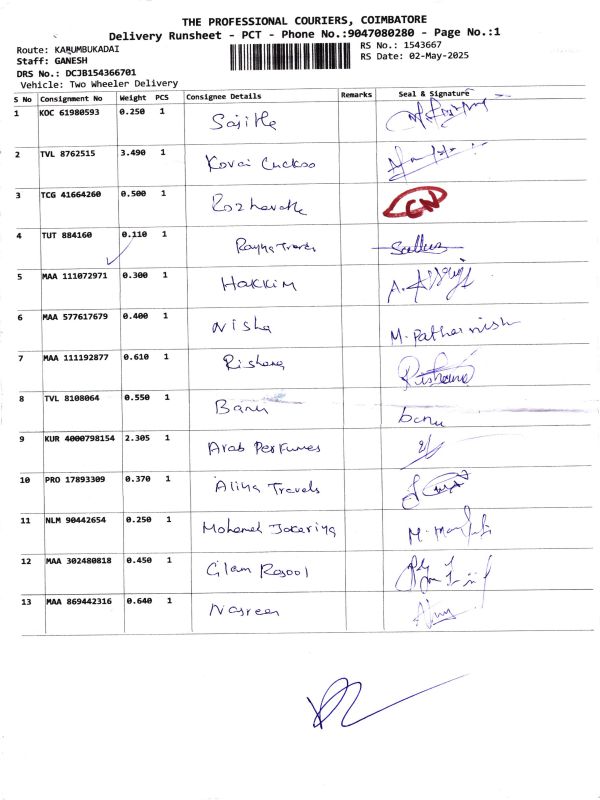 THE PROFESSIONAL COURIERS, COIMBATORE
Delivery Runsheet - PCT - Phone No.:9047080280 - Page No.:1
Route: KARUMBUKADAI
RS No.: 1543667
Staff: GANESH
RS Date: 02-May-2025
DRS No.: DCJB154366701
Vehicle: Two Wheeler Delivery
S No Consignment No Weight PCS Consignee Details Remarks Seal & Signature
1 KOC 61980593 0.250 1 Sajitha
2 TVL 8762515 3.490 1 Kovai Cuckoo
3 TCG 41664260 0.500 1 CN
4 TUT 884160 0.110 1
5 MAA 111072971 0.300 1 Hakkim
6 MAA 577617679 0.400 1 Nisha M. Pathernish
7 MAA 111192877 0.610 1 Rishana Rishana
8 TVL 8108064 0.550 1 Banu banu
9 KUR 4000798154 2.305 1 Arab Perfumes
10 PRO 17893309 0.370 1 Aliya Travels
11 NLM 90442654 0.250 1 Mohamed Jakariya
12 MAA 302480818 0.450 1 Gilam Rasool
13 MAA 869442316 0.640 1 Nasreen